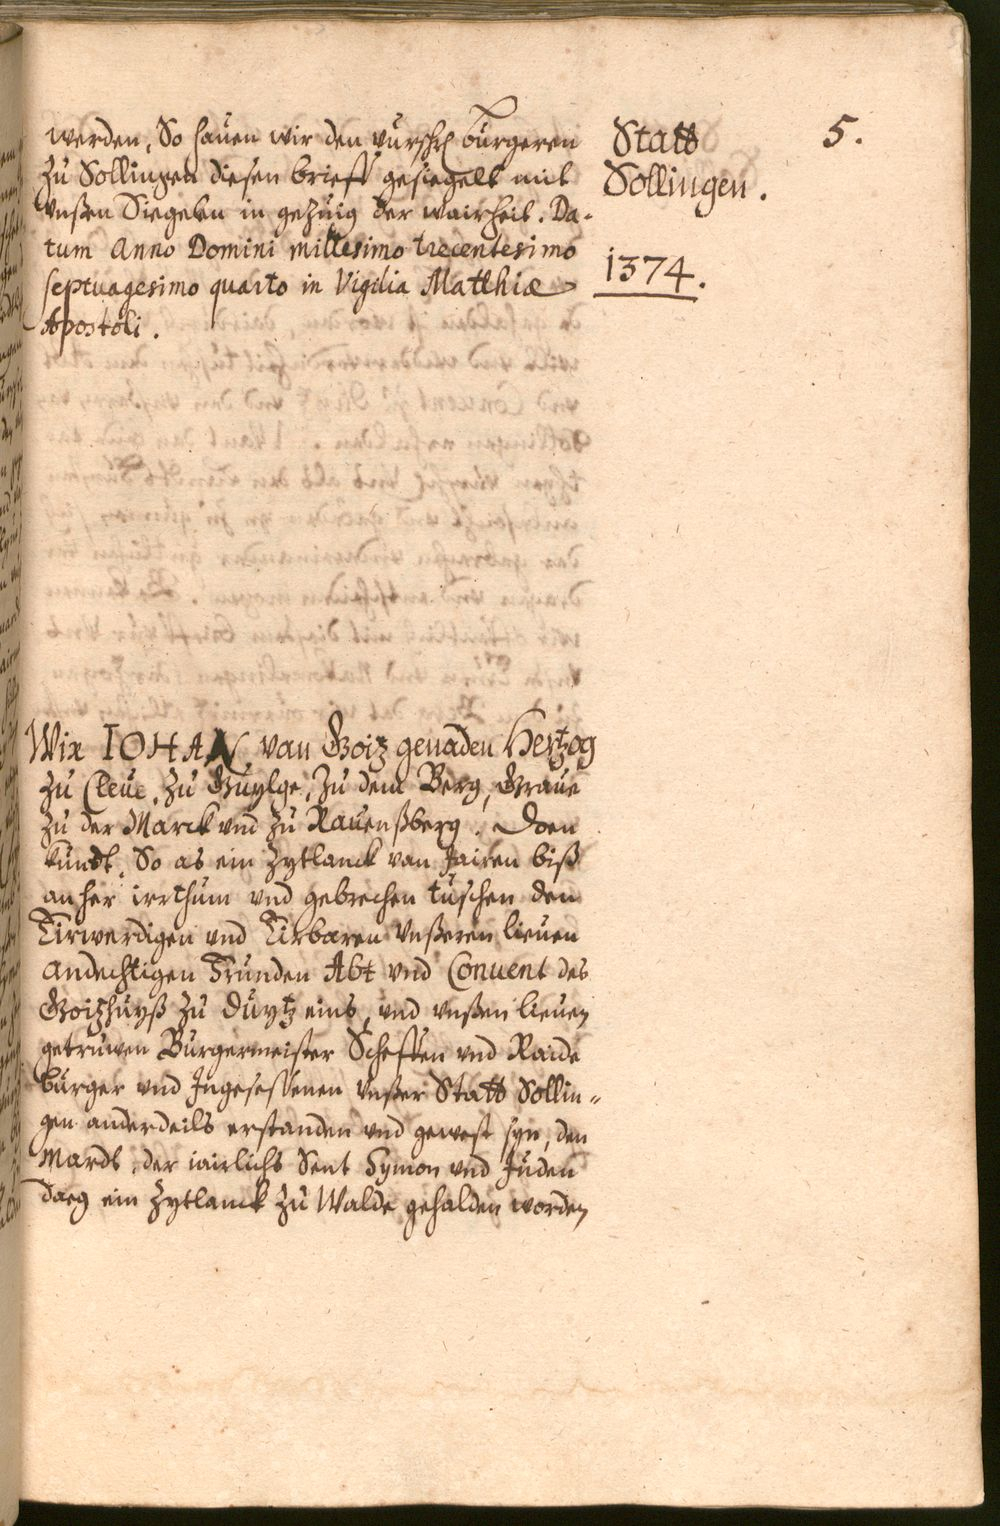 5.
Statt
Sollingen.
1374.
werden, So hauen wir den vurschr burgeren
zu Sollingen diesen brieff gesiegelt mit
vnßen Siegelen in gezuig der wairheit. Da-
tum Anno Domini millesimo trecentesimo
septuagesimo quarto in Vigilia Matthiæ
Apostoli.
Wir IOHAN, van Goitz genaden Hertzog
zu Cleue, zu Guylge, zu dem Berg, Graue
zu der Marck vnd zu Rauenßberg. Doen
kundt, So as ein zytlanck van Jairen biß
anher irrthum vnd gebrechen tuschen den
Eirwerdigen vnd Eirbaren vnßeren lieuen
andechtigen Frunden Abt vnd Conuent des
Goitzhuyß zu Duytz eins, vnd vnßen lieuen
getruwen Burgermeister Scheffen vnd Raide
burger vnd Ingesessenen vnßer Statt Sollin-
gen anderdeils erstanden vnd gewest syn, den
Mardt, der iairlichs Sent Symon vnd Juden
daeg ein zytlanck zu Walde gehalden worden